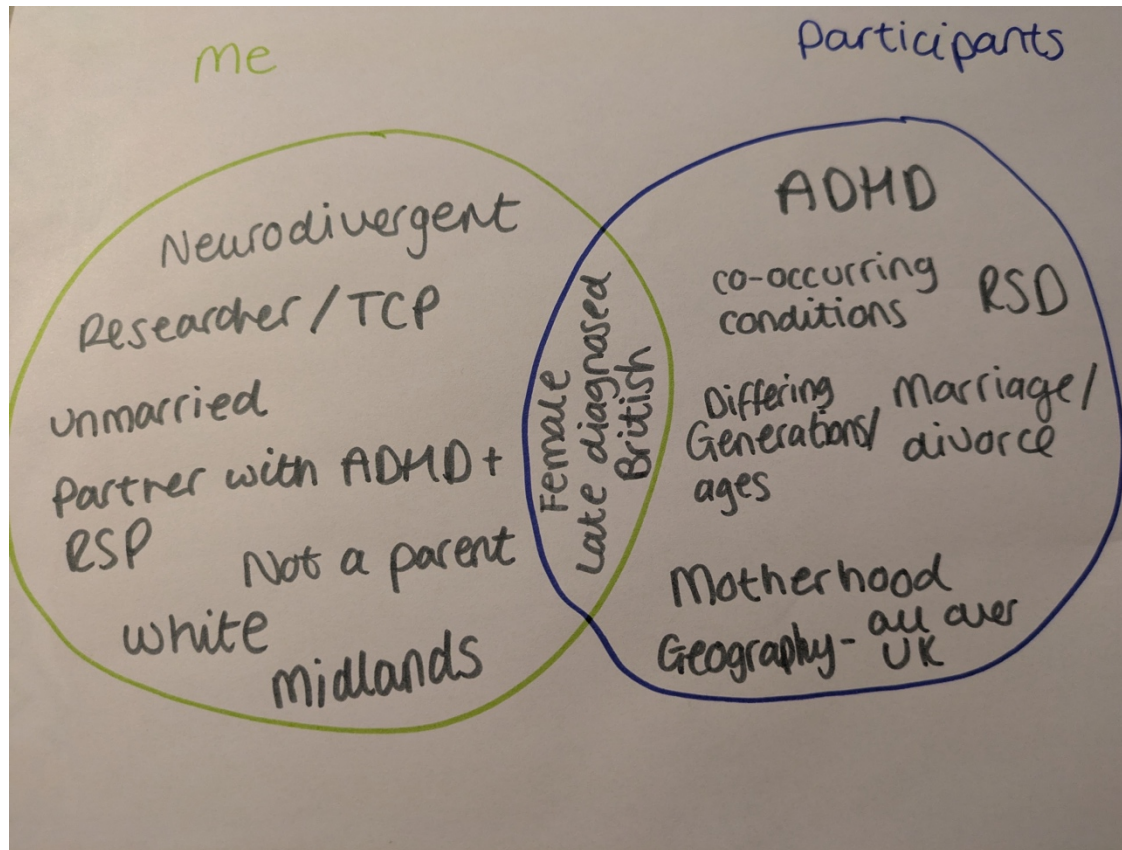 me
Participants
Neurodivergent
Researcher / TCP
unmarried
Partner with ADHD +
RSP
Not a parent
white
midlands
Female
Late diagnosed
British
ADHD
co-occurring
conditions
RSD
Differing
Generations/
ages
Marriage/
divorce
Motherhood
Geography - all over
UK